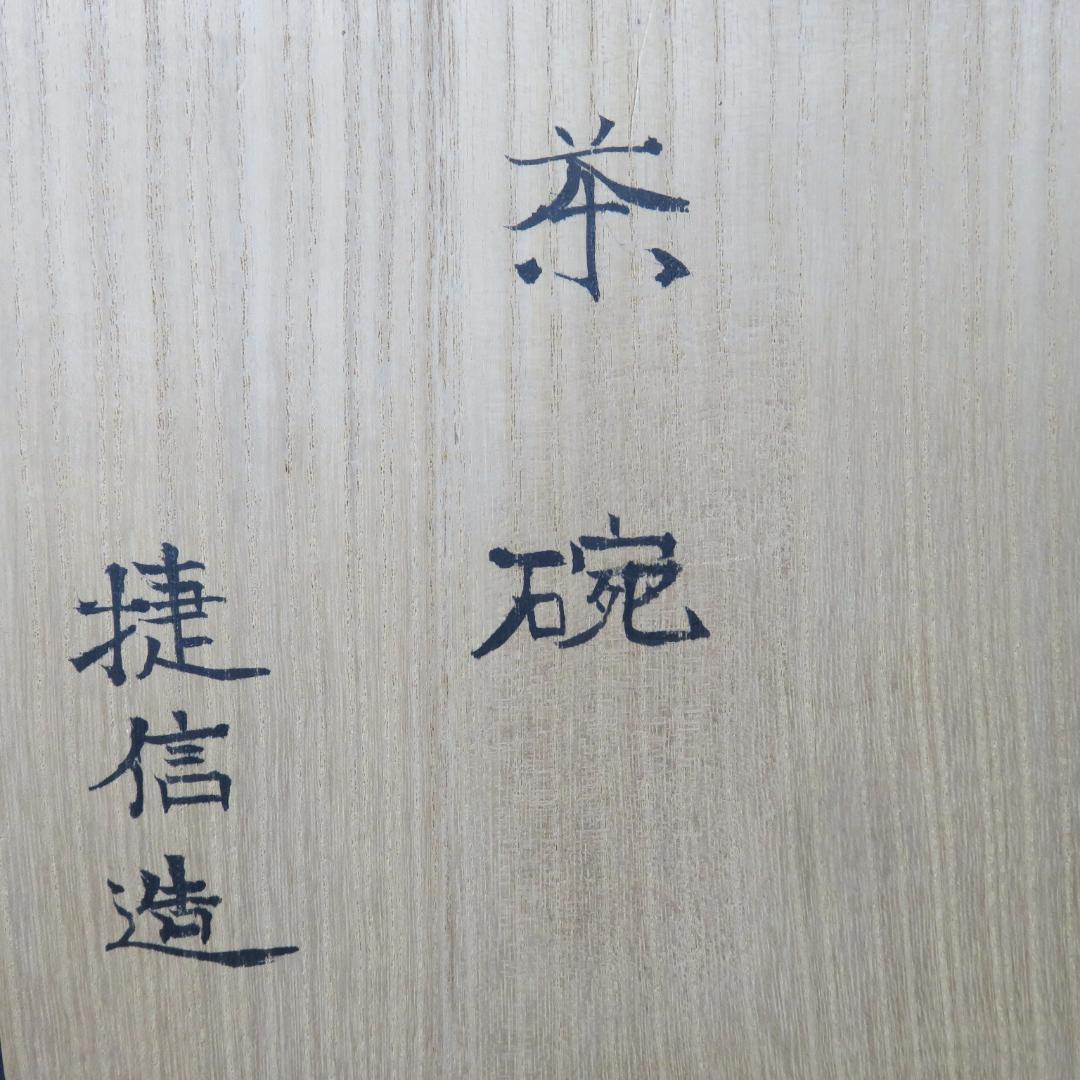 茶碗
捷信造